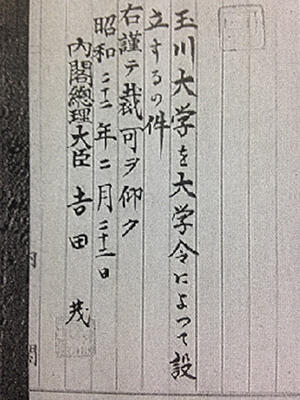 玉川大学を大学令によつて設
立するの件
右謹テ裁可ヲ仰ク
昭和二十二年二月二十二日
内閣總理大臣吉田茂
内閣